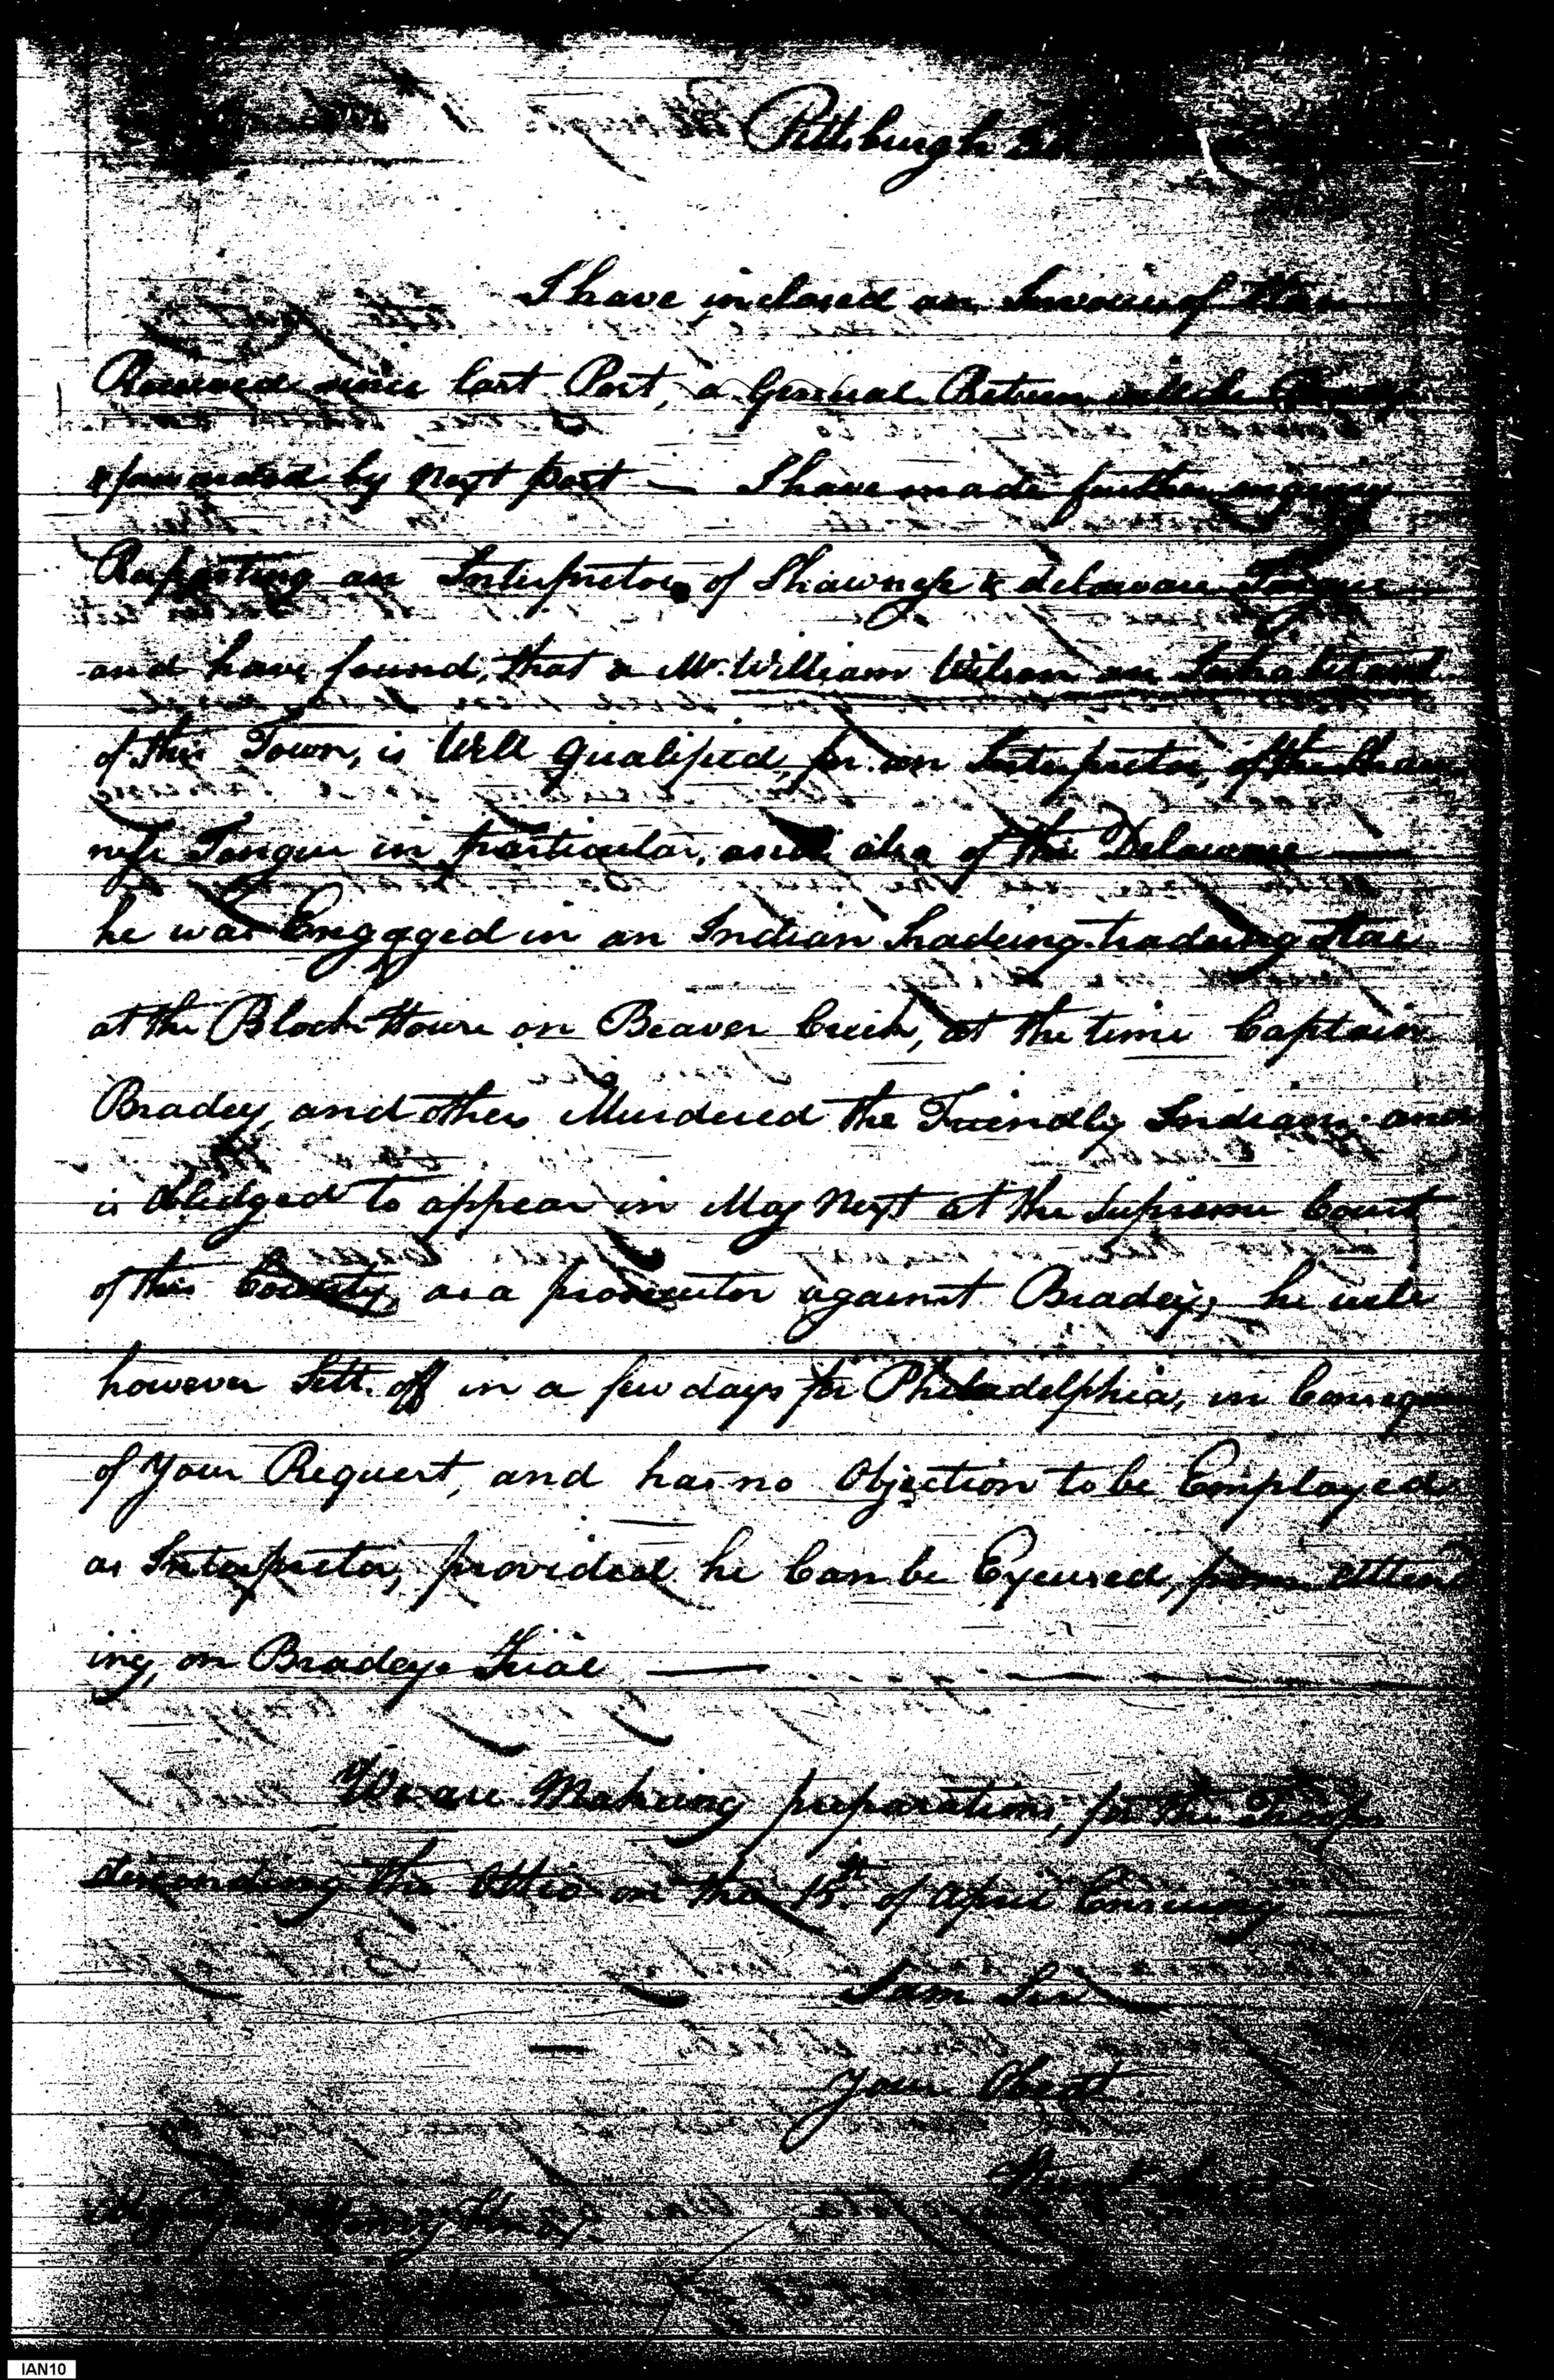 Pittsburgh
I have inclosed an Invoice of Stores
Received since last Post, a General Return will be
& forwarded by Next post — I have made further enquiry
Respecting an Interpretor of Shawnese & delaware Tongue
and have found, that a Mr. William Wilson an Inhabitant
of this Town, is Well qualified, for an Interpretor, of the Shaw
nese Tongue in particular, and also of the Delaware —
he was Engaged in an Indian Tradeing tradeing Store
at the Block House on Beaver Creek, at the time Captain
Bradey, and others Murdered the Friendly Indians and
is obledged to appear in May Next at the Supreme Court
of this County, as a prosecutor against Bradey, he will
however Sett off in a few days for Philadelphia, in Consequ
of Your Request, and has no Objection to be Employed
as Interpretor, provided he Can be Excused, from Attend
ing, on Bradeys Trial —
We are Makeing preparations, for the Troops
descending the Ohio on the 15th of April Ensuing
I am Sir
Your Obedt
Servt